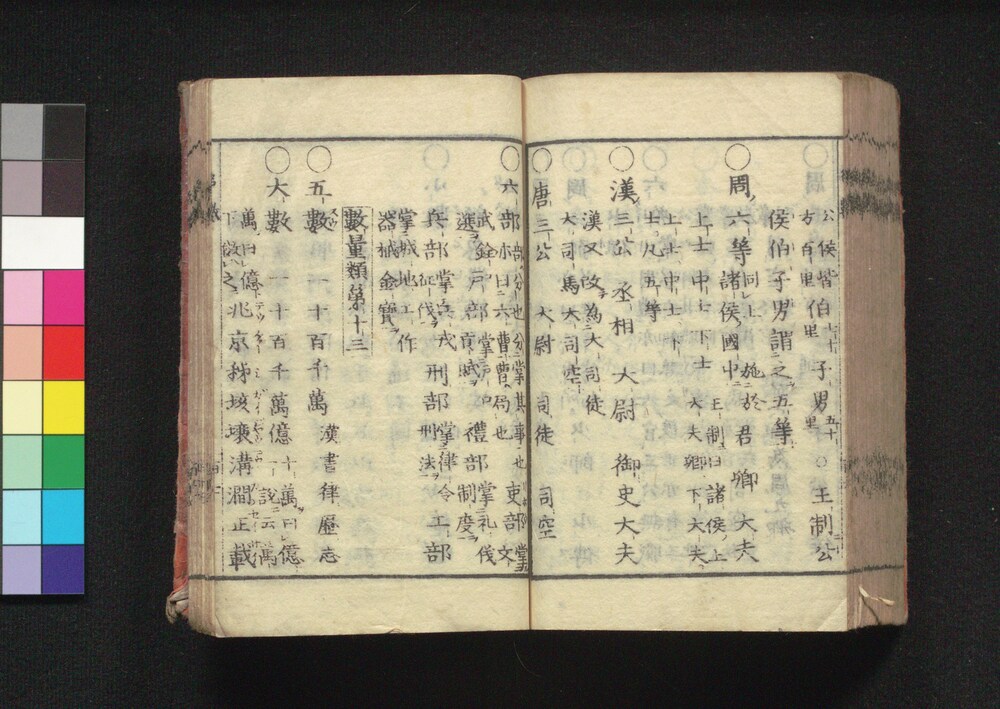 公侯皆方百里伯七十里子男五十里○王制公
侯伯子男謂之五等
○周六等同上施於諸侯國中君卿大夫
上士中士下士王制曰諸侯上大夫卿下大夫
上士中士下士凡五等
○漢三公丞相大尉御史大夫
漢又改為大司徒大司馬大司空
○唐三公大尉司徒司空
○六部部分也分掌其事也亦曰六曹曹局也吏部掌文
武銓選戶部掌戶口貢賦禮部掌礼制度
兵部掌兵戎征伐刑部掌律令刑法工部
掌城地工作器械金寶
數量類第十三
○五數一十百千萬漢書律歷志
○大數一十百千萬億十萬曰億一說云萬
萬曰億下倣之兆京秭垓壤溝澗正載